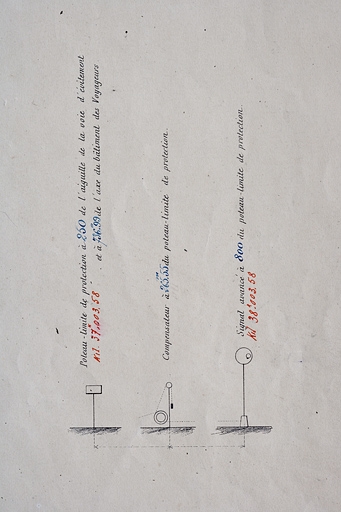 Poteau-limite de protection à 250 de l'aiguille de la voie d'évitement
et à de l'axe du bâtiment des Voyageurs
Kil. 37.003,58
Compensateur à du poteau-limite de protection.
Signal avancé à 800 du poteau-limite de protection.
Kil 38.003.58